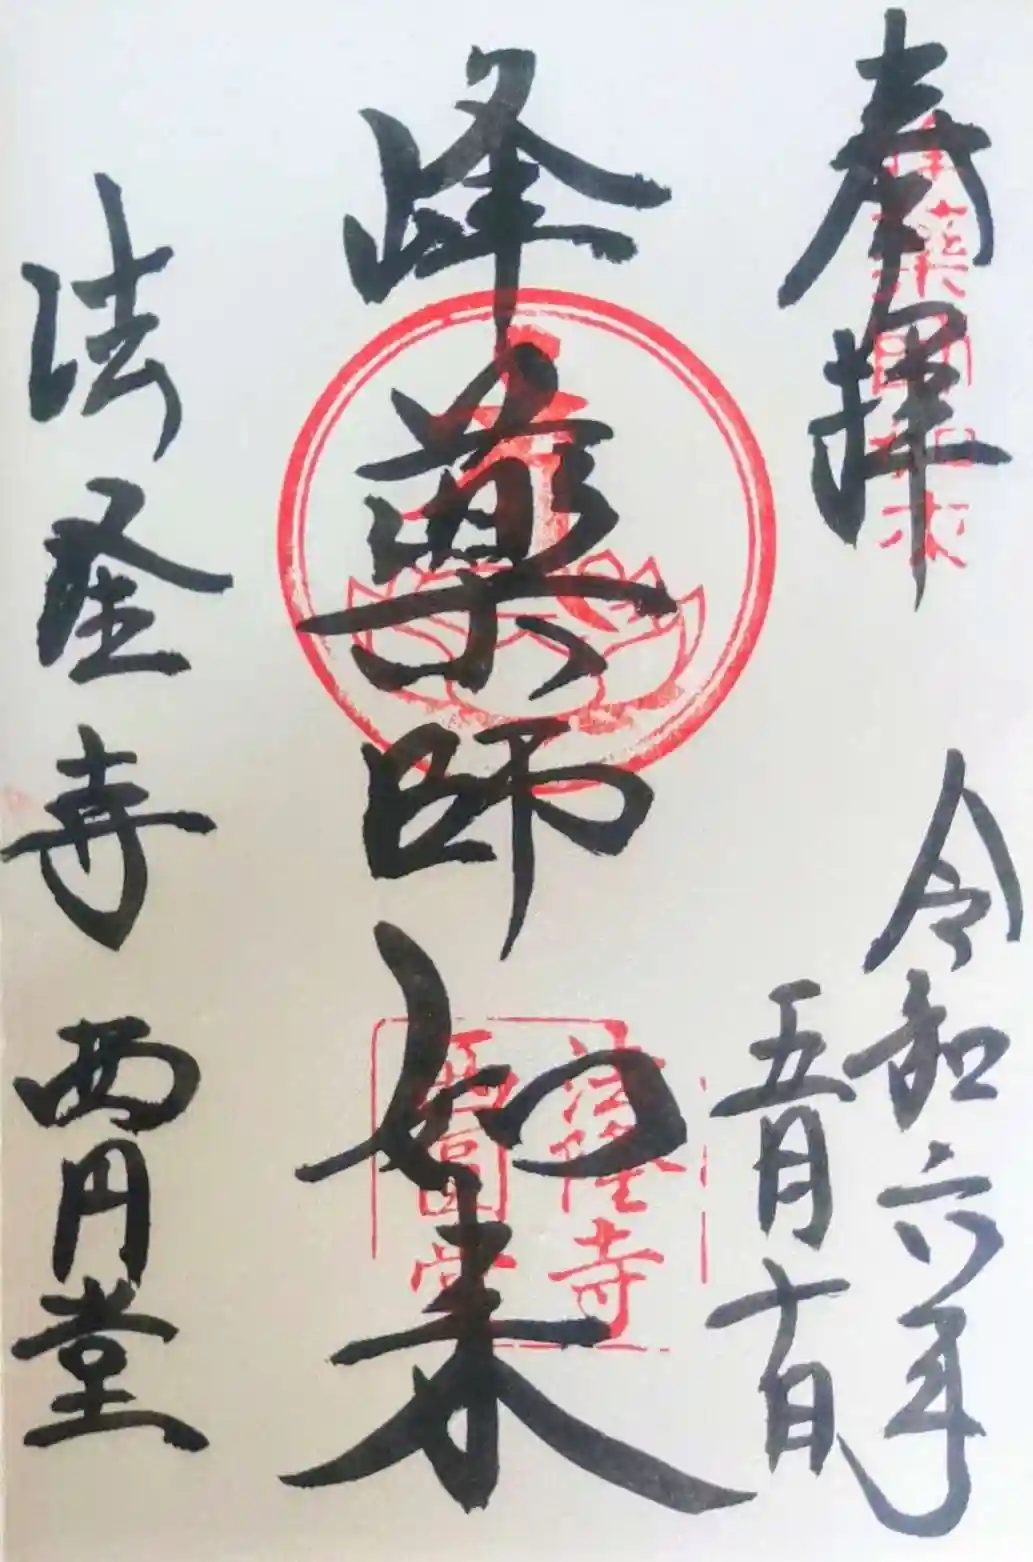 奉拝
令和六年
五月十日
峰薬師如来
法隆寺
西円堂
峯薬師如来
法隆寺
西圓堂